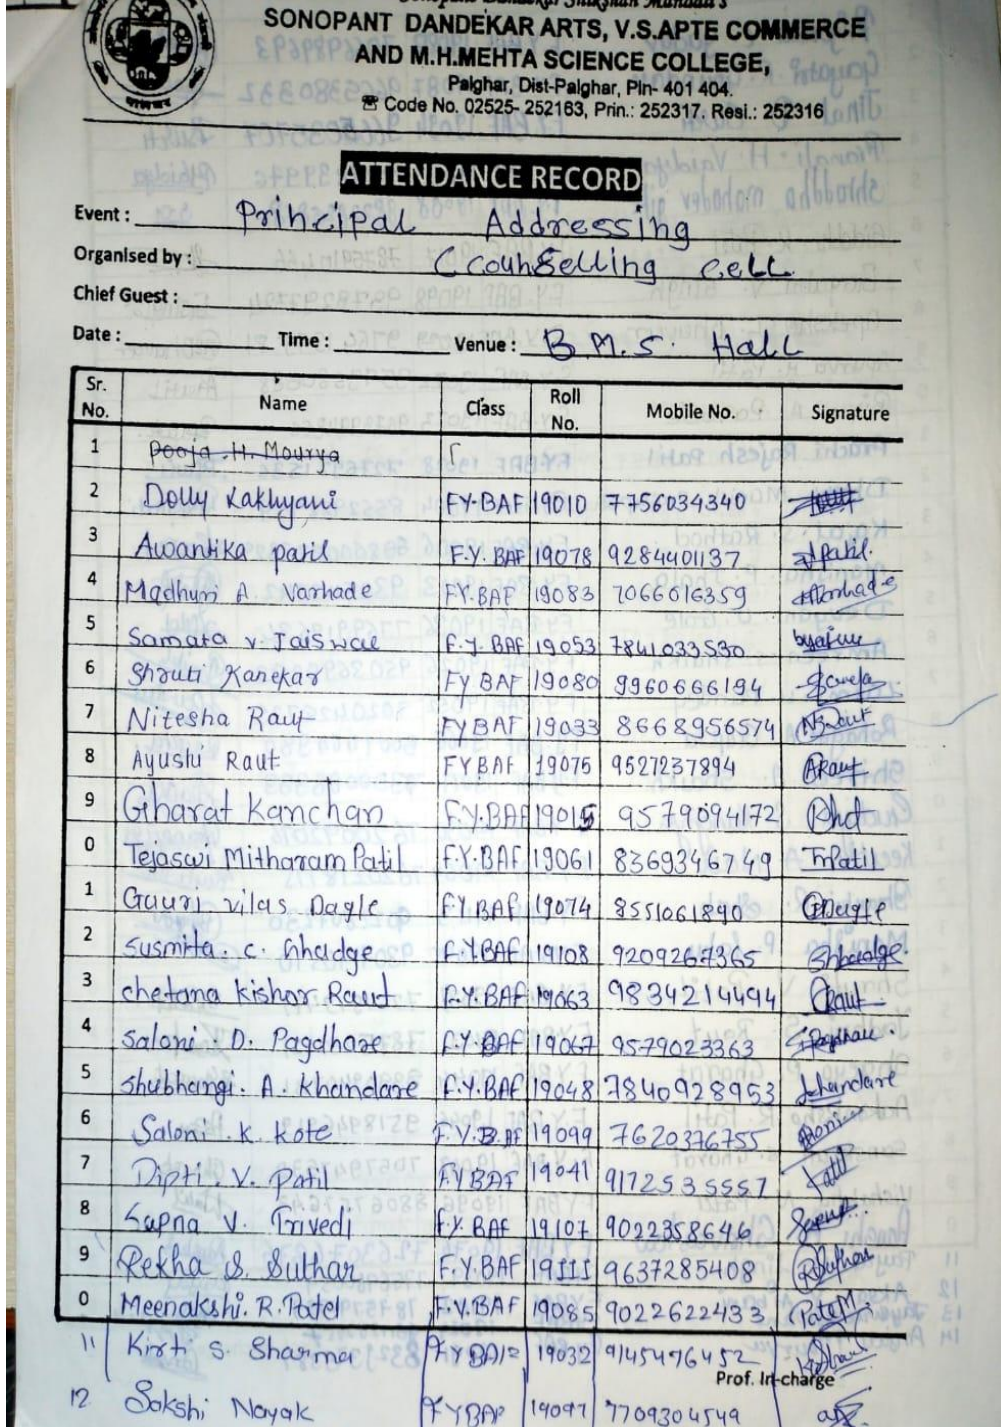 Sonopant Dandekar Shikshan Mandali's
SONOPANT DANDEKAR ARTS, V.S.APTE COMMERCE
AND M.H.MEHTA SCIENCE COLLEGE,
Palghar, Dist-Palghar, Pin- 401 404.
☎ Code No. 02525- 252163, Prin.: 252317. Resi.: 252316
ATTENDANCE RECORD
Event : Principal Addressing
Organised by : Ccounselling cell
Chief Guest :
Date : Time : Venue : B.M.S. Hall
Sr. No. Name Class Roll No. Mobile No. Signature
1 Pooja .H. Mourya
2 Dolly Lakhyani F.Y.BAF 19010 7756034340
3 Awantika patil F.Y. BAF 19078 9284401137 Apatil.
4 Madhuri A. Varhade F.Y.BAF 19083 7066016359
5 Samata v. Jaiswal F.Y. BAF 19053 7841033530
6 Shruti Kanekar FY BAF 19080 9960666194
7 Nitesha Raut FYBAF 19033 8668956574
8 Ayushi Raut FYBAF 19075 9527237894 ARaut
9 Gharat Kanchan F.Y.BAF 19015 9579094172
0 Tejaswi Mitharam Patil F.Y.BAF 19061 8369346749 TmPatil
1 Gauri vilas Dagle F.Y.BAF 19074 8551061890 GDagle
2 Susmita. C. Ghadge F.Y.BAF 19108 9209267365
3 chetana kishor Raut F.Y.BAF 19063 9834214494 CRaut
4 Saloni . D. Pagdhare F.Y.BAF 19067 9579023363
5 Shubhangi. A. Khandare F.Y.BAF 19048 7840928953
6 Saloni . K. Kote F.Y.B.AF 19099 7620376755
7 Dipti . V. Patil F.Y BAF 19041 9172535557
8 Sapna V. Trivedi F.Y. BAF 19107 9022358646
9 Rekha S. Suthar F.Y.BAF 19111 9637285408
0 Meenakshi. R. Patel F.Y.BAF 19085 9022622433
11 Kirti S. Sharma FYBAF 19032 9145476452
Prof. In-charge
12 Sakshi Nayak FYBAF 19097 7709304549